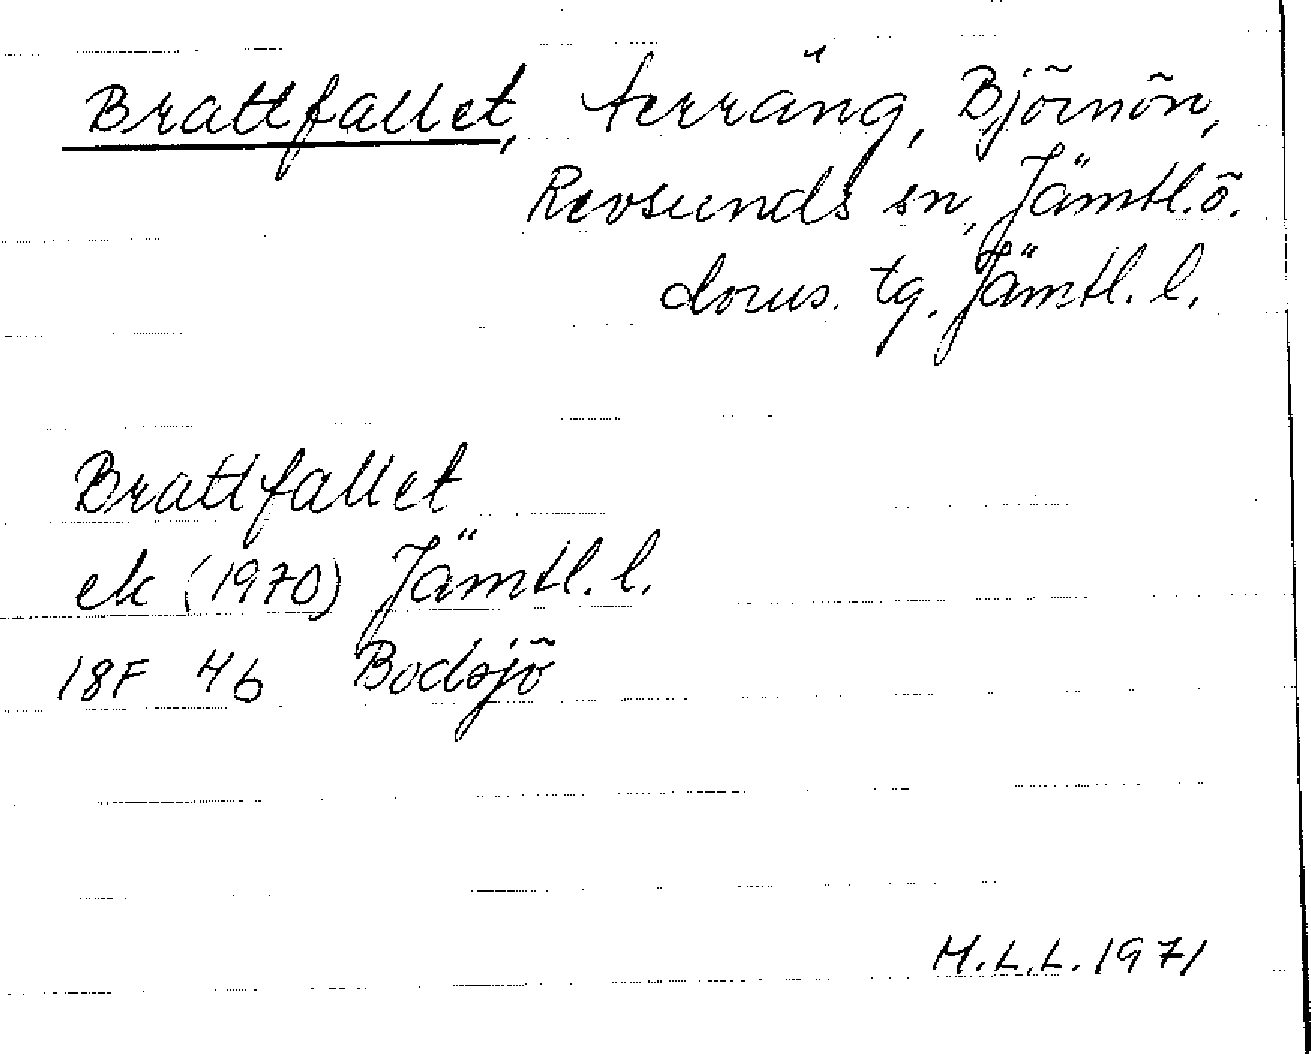 Brattfallet, terräng, Björnön,
Revsunds sn, Jämtl.ö.
doms. tg. Jämtl. l.
Brattfallet
ek (1970) Jämtl. l.
18F 4b Bodsjö
M.L.L. 1971